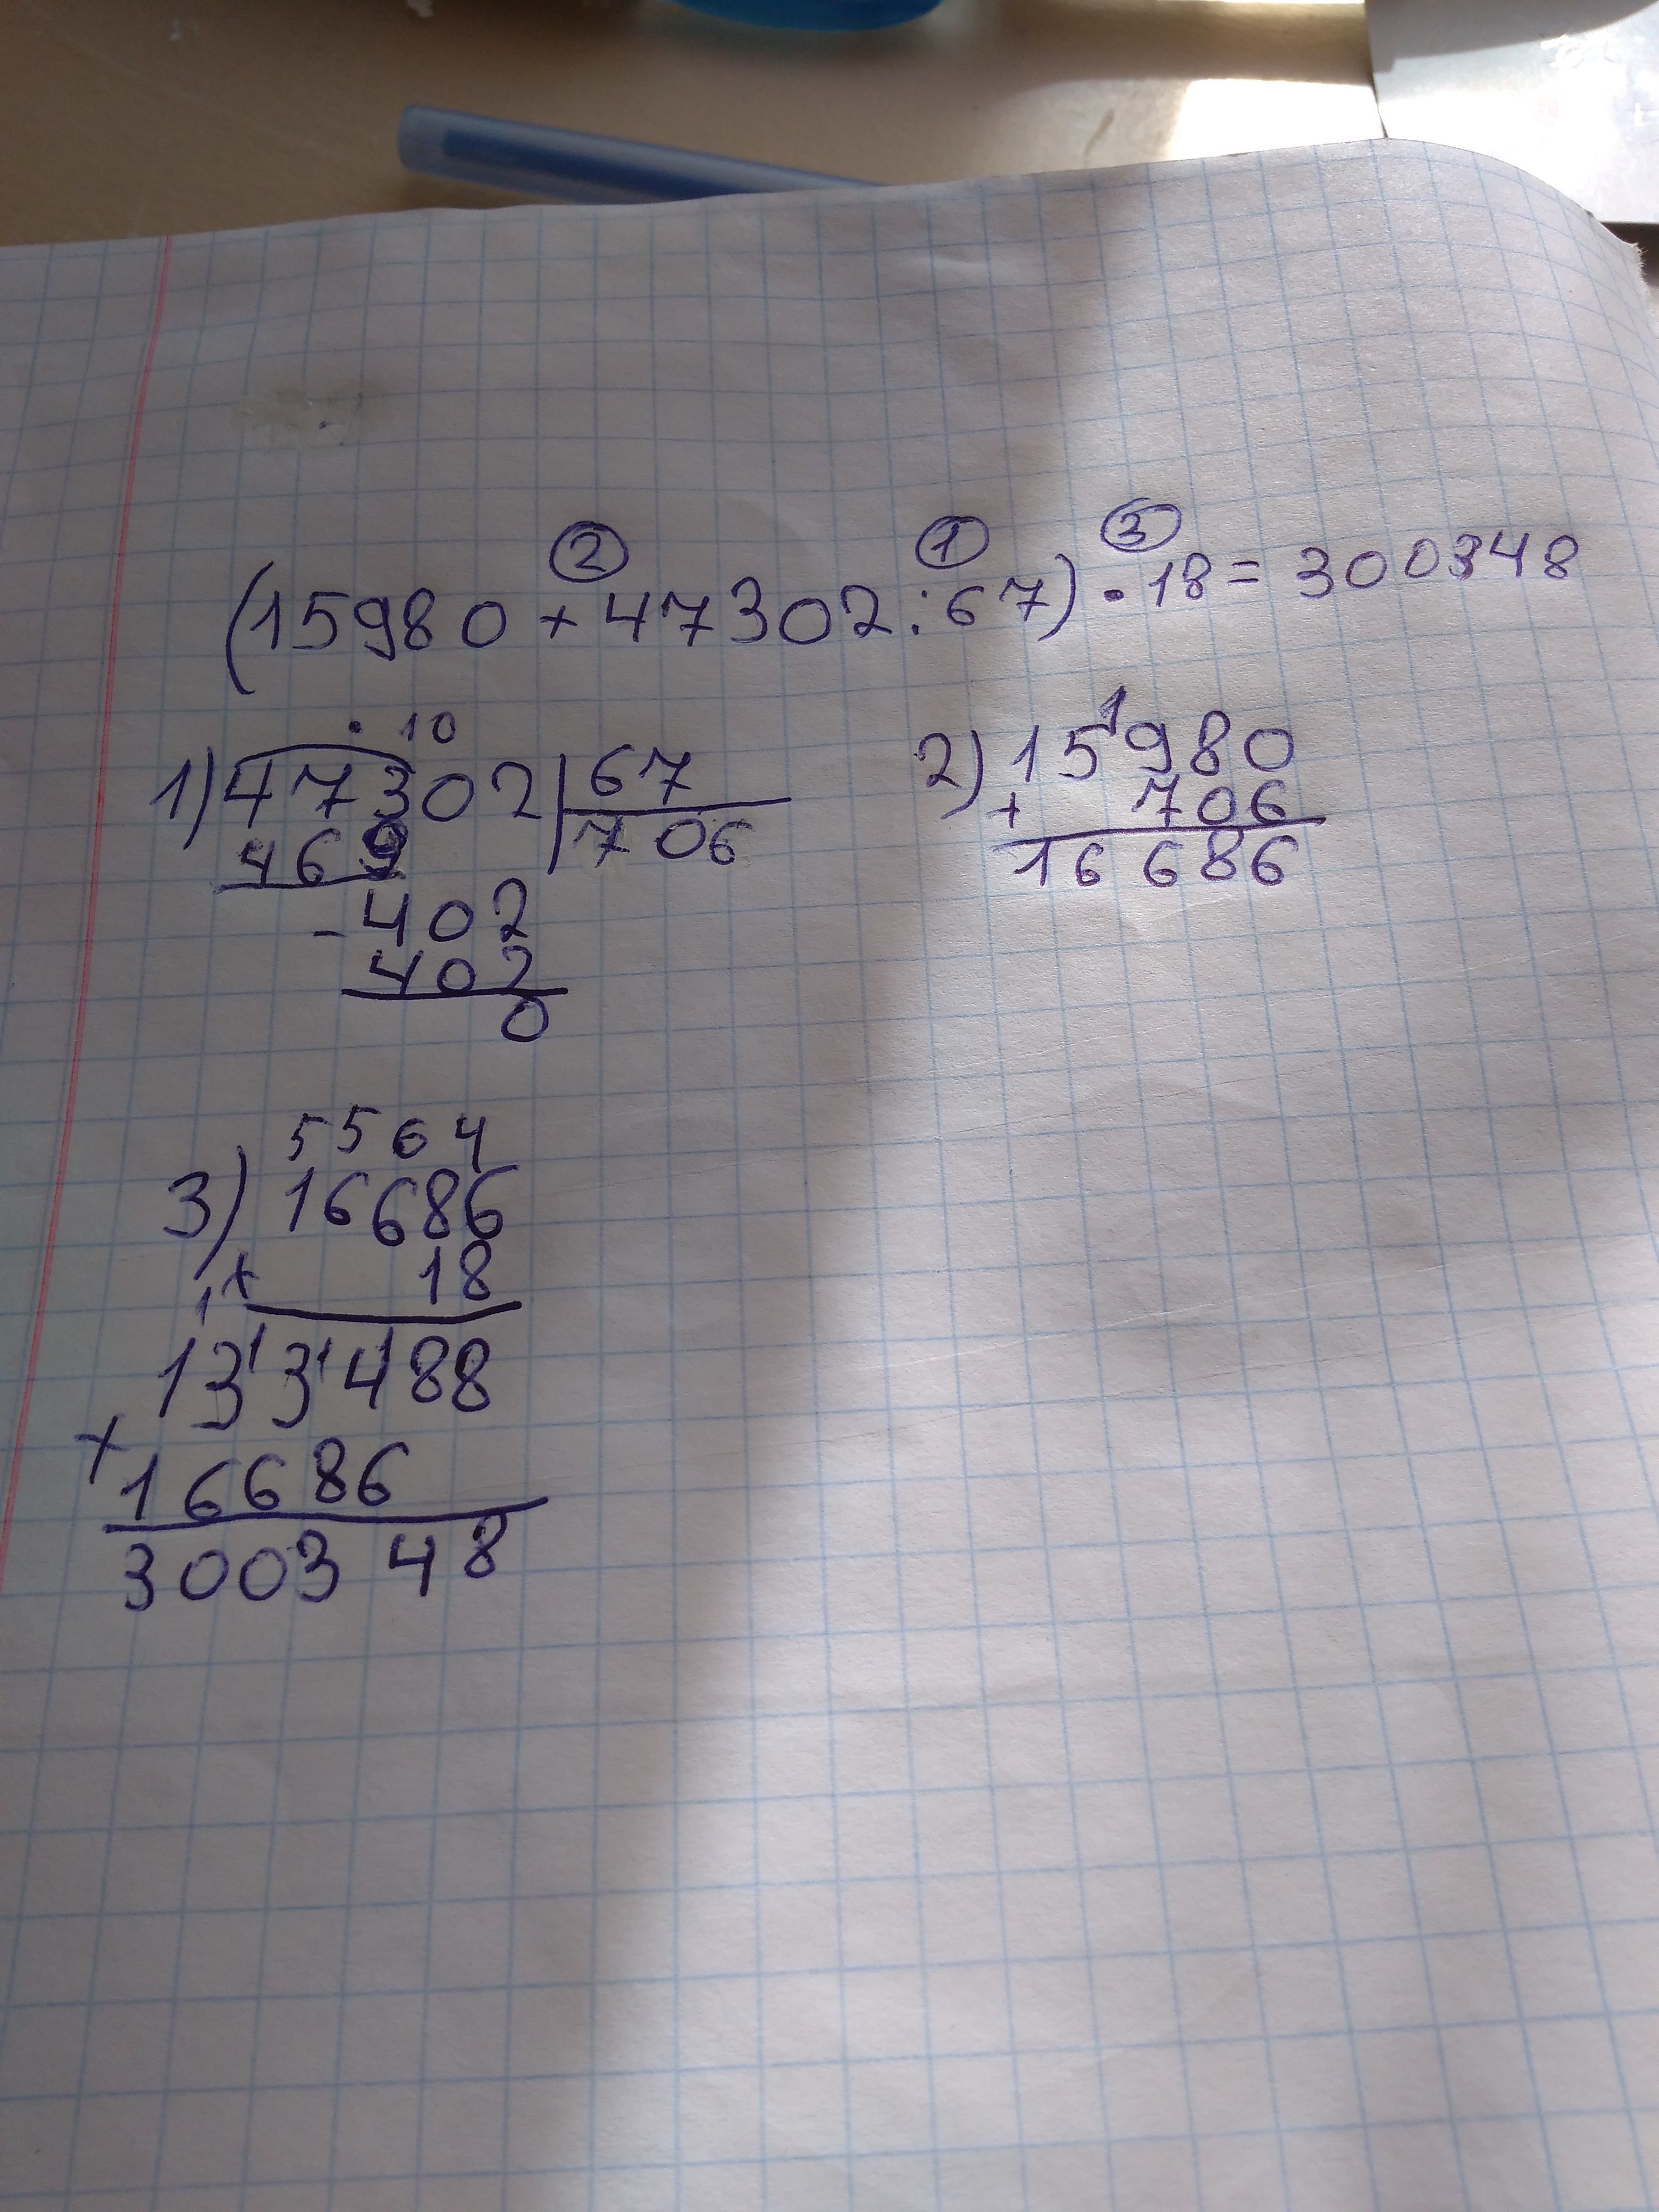 ② ① ③
(15980 + 47302 : 67) · 18 = 300348
· 10
1) 47302 | 67
469 706
- 402
402
0
1
2) 15980
+ 706
16686
5564
3) 16686
× 18
1 1 1 1
133488
+ 16686
300348